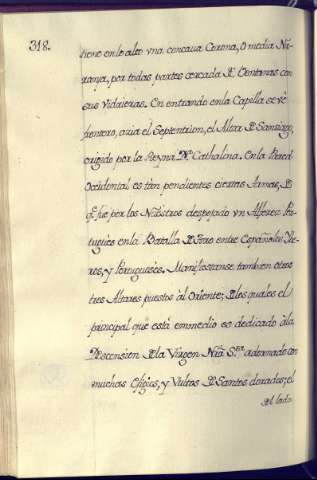 318.
tiene en lo alto vna concaua Corona, ò media Na-
ranja, por todas partes cercada de Ventanas con
sus Vidrieras. En entrando en la Capilla se vè
frontero, azia el Septentrion, el Altar de Santiago,
erigido por la Reyna Da. Cathalina. En la Pared
Occidental estàn pendientes ciertas Armas, de
qe. fue por los Nuestros despojado vn Alferez Por-
tuguès en la Batalla de Toro entre Españoles
y Portugueses. Manifiestanse tambien otros
tres Altares puestos àl Oriente; de los quales el
principal que està en medio es dedicado à la
Descension de la Virgen Nra. Sra. adornado con
muchas Efigies, y Vultos de Santos dorados; el
del lado